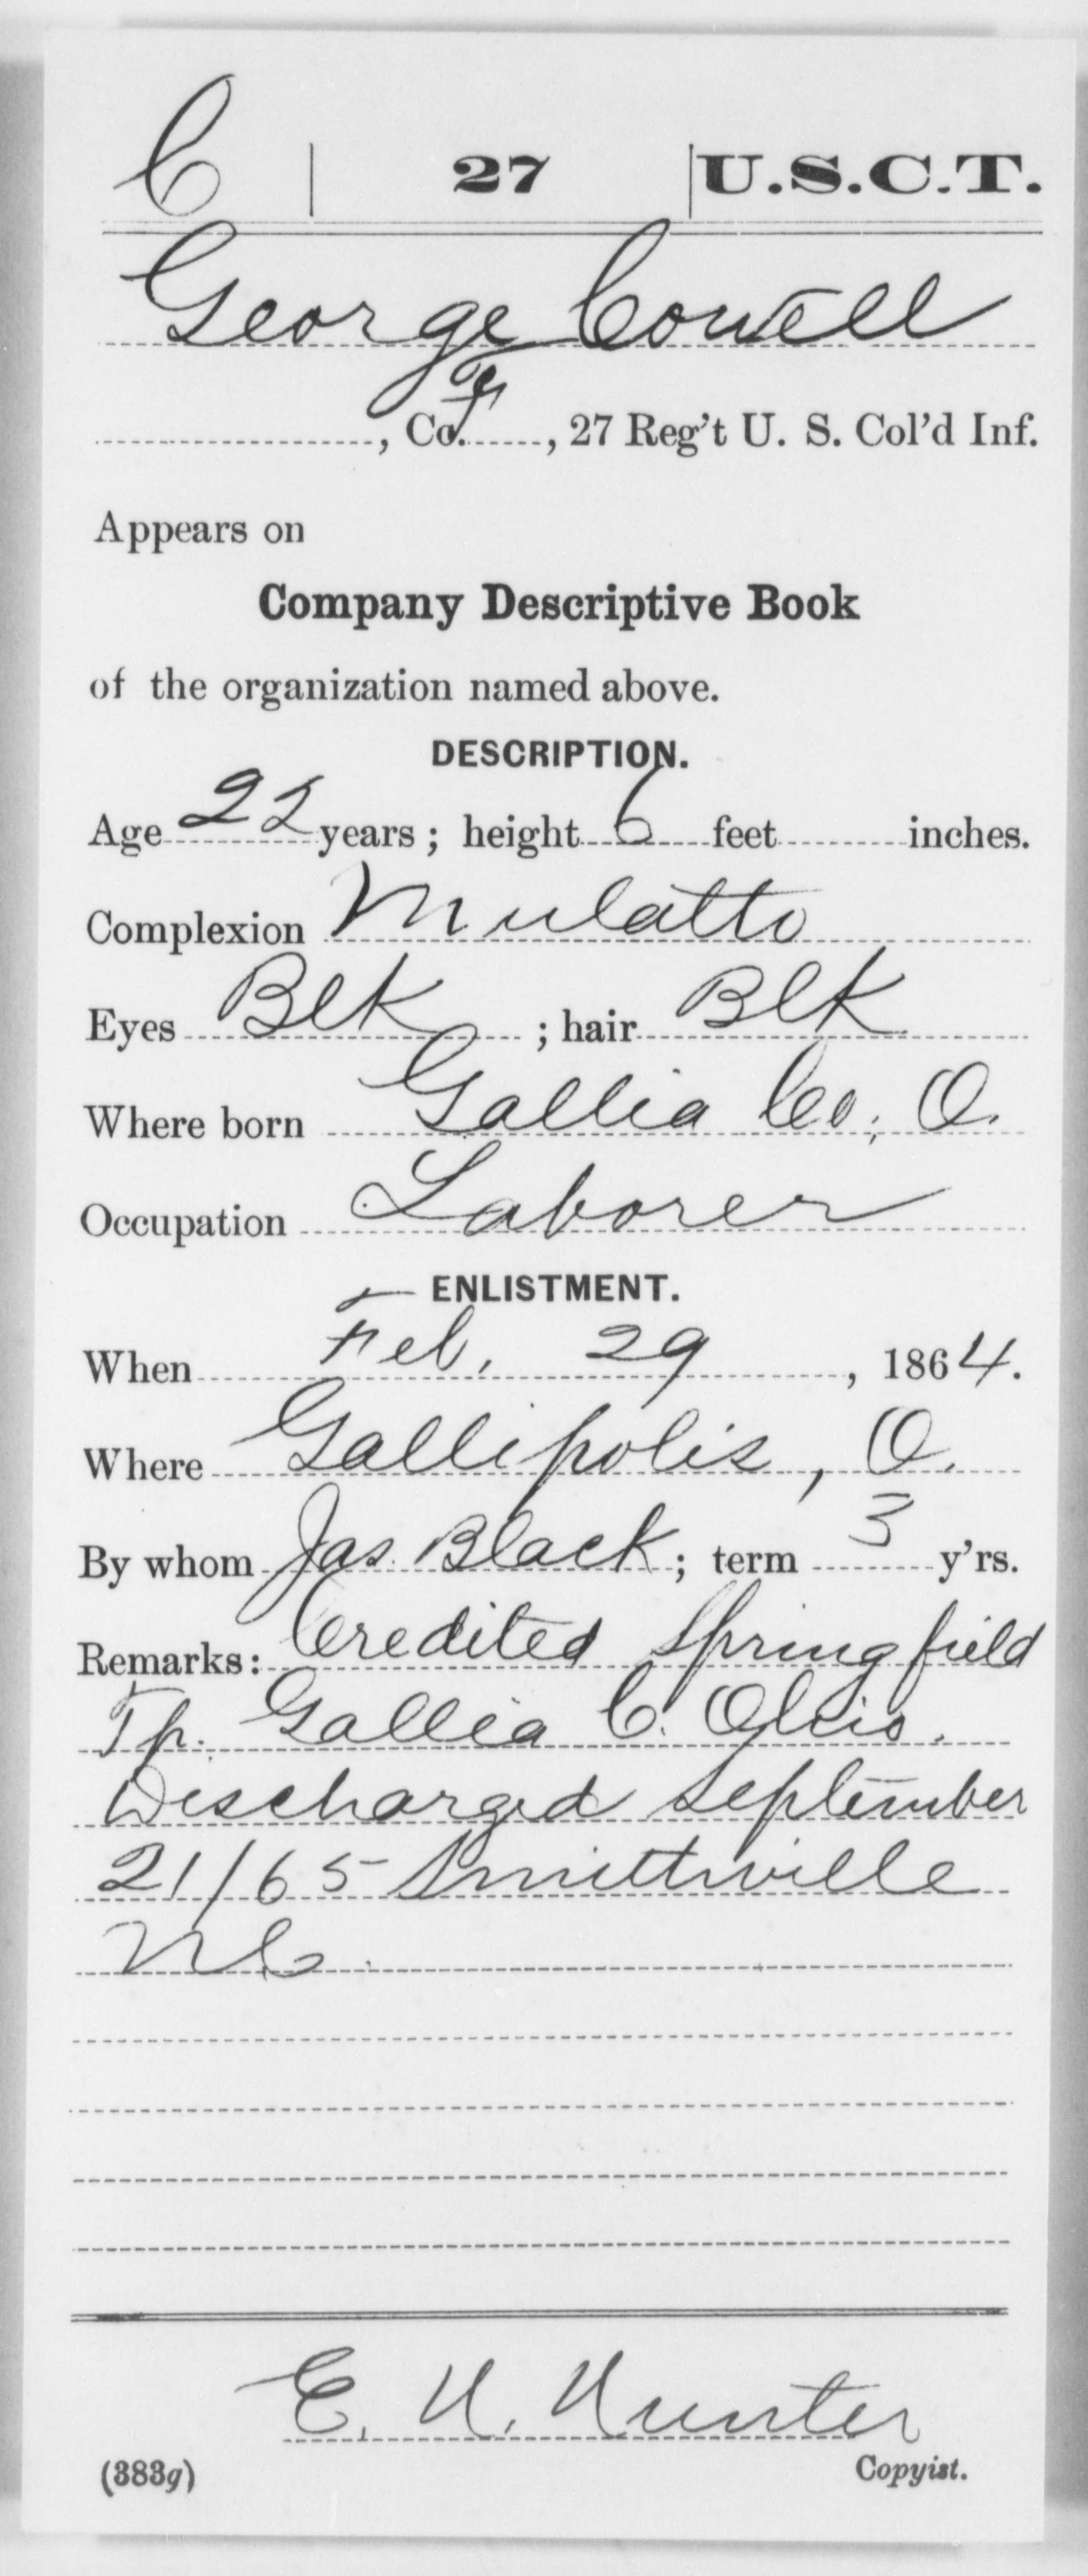 C | 27 | U.S.C.T.
George Cowell
, Co. F, 27 Reg't U. S. Col'd Inf.
Appears on
Company Descriptive Book
of the organization named above.
DESCRIPTION.
Age 22 years; height 6 feet inches.
Complexion Mulatto
Eyes Blk ; hair Blk
Where born Gallia Co, O.
Occupation Laborer
ENLISTMENT.
When Feb. 29, 1864.
Where Gallipolis, O.
By whom Jas. Black; term 3 y'rs.
Remarks: Credited Springfield
Tp. Gallia C. Ohio.
Discharged September
21/65 Smithville
NC.
E. H. Hunter
(383g) Copyist.